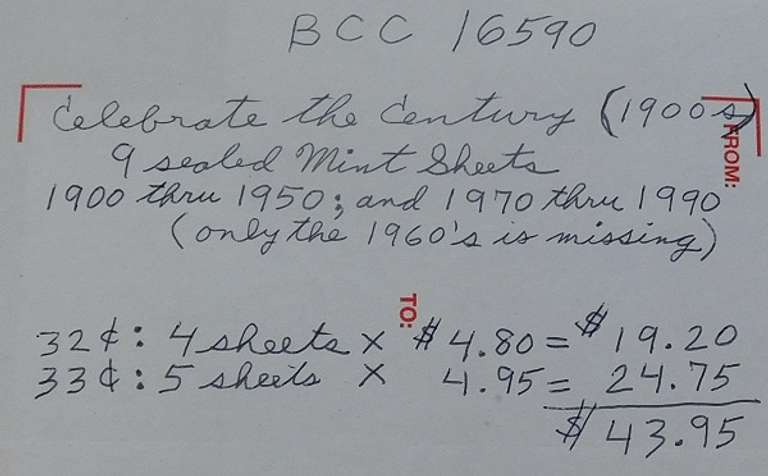 BCC 16590
Celebrate the Century (1900s)
FROM:
9 sealed Mint Sheets
1900 thru 1950; and 1970 thru 1990
(only the 1960's is missing)
TO:
32¢: 4 sheets x $4.80 = $19.20
33¢: 5 sheets x 4.95 = 24.75
$43.95